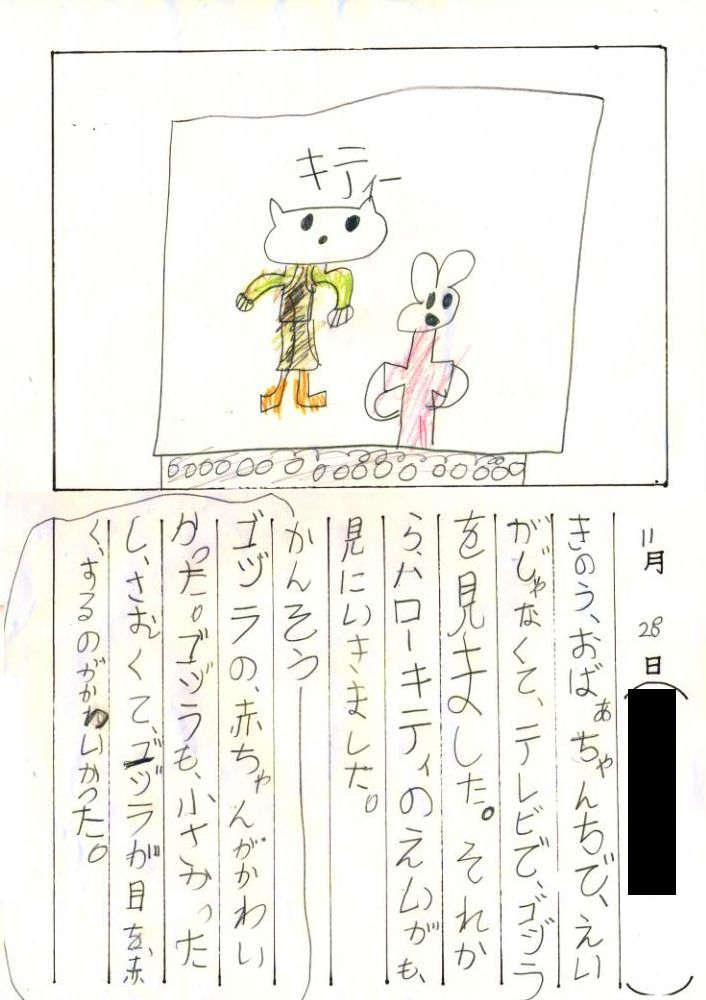 キティー
11月28日(
きのう、おばぁちゃんちで、えい
がじゃなくて、テレビで、ゴジラ
を見ました。それか
ら、ハローキティのえいがも、
見にいきました。
かんそう
ゴヅラの、赤ちゃんがかわい
かった。ゴジラも、小さかった
し、さむくて、ゴヅラが目を、赤
く、するのがかわいかった。